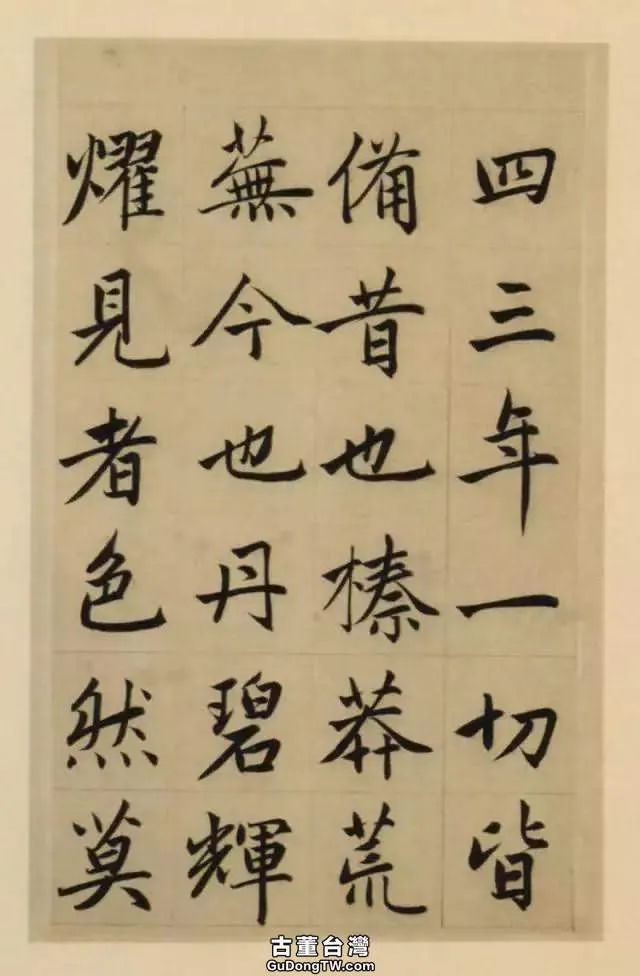 四三年一切皆
備昔也榛莽荒
蕪今也丹碧輝
燿見者色然莫
古董台灣
GuDongTW.com